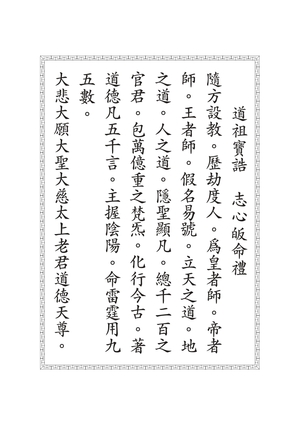 道祖寶誥　志心皈命禮
隨方設教。歷劫度人。為皇者師。帝者
師。王者師。假名易號。立天之道。地
之道。人之道。隱聖顯凡。總千二百之
官君。包萬億重之梵炁。化行今古。著
道德凡五千言。主握陰陽。命雷霆用九
五數。
大悲大願大聖大慈太上老君道德天尊。